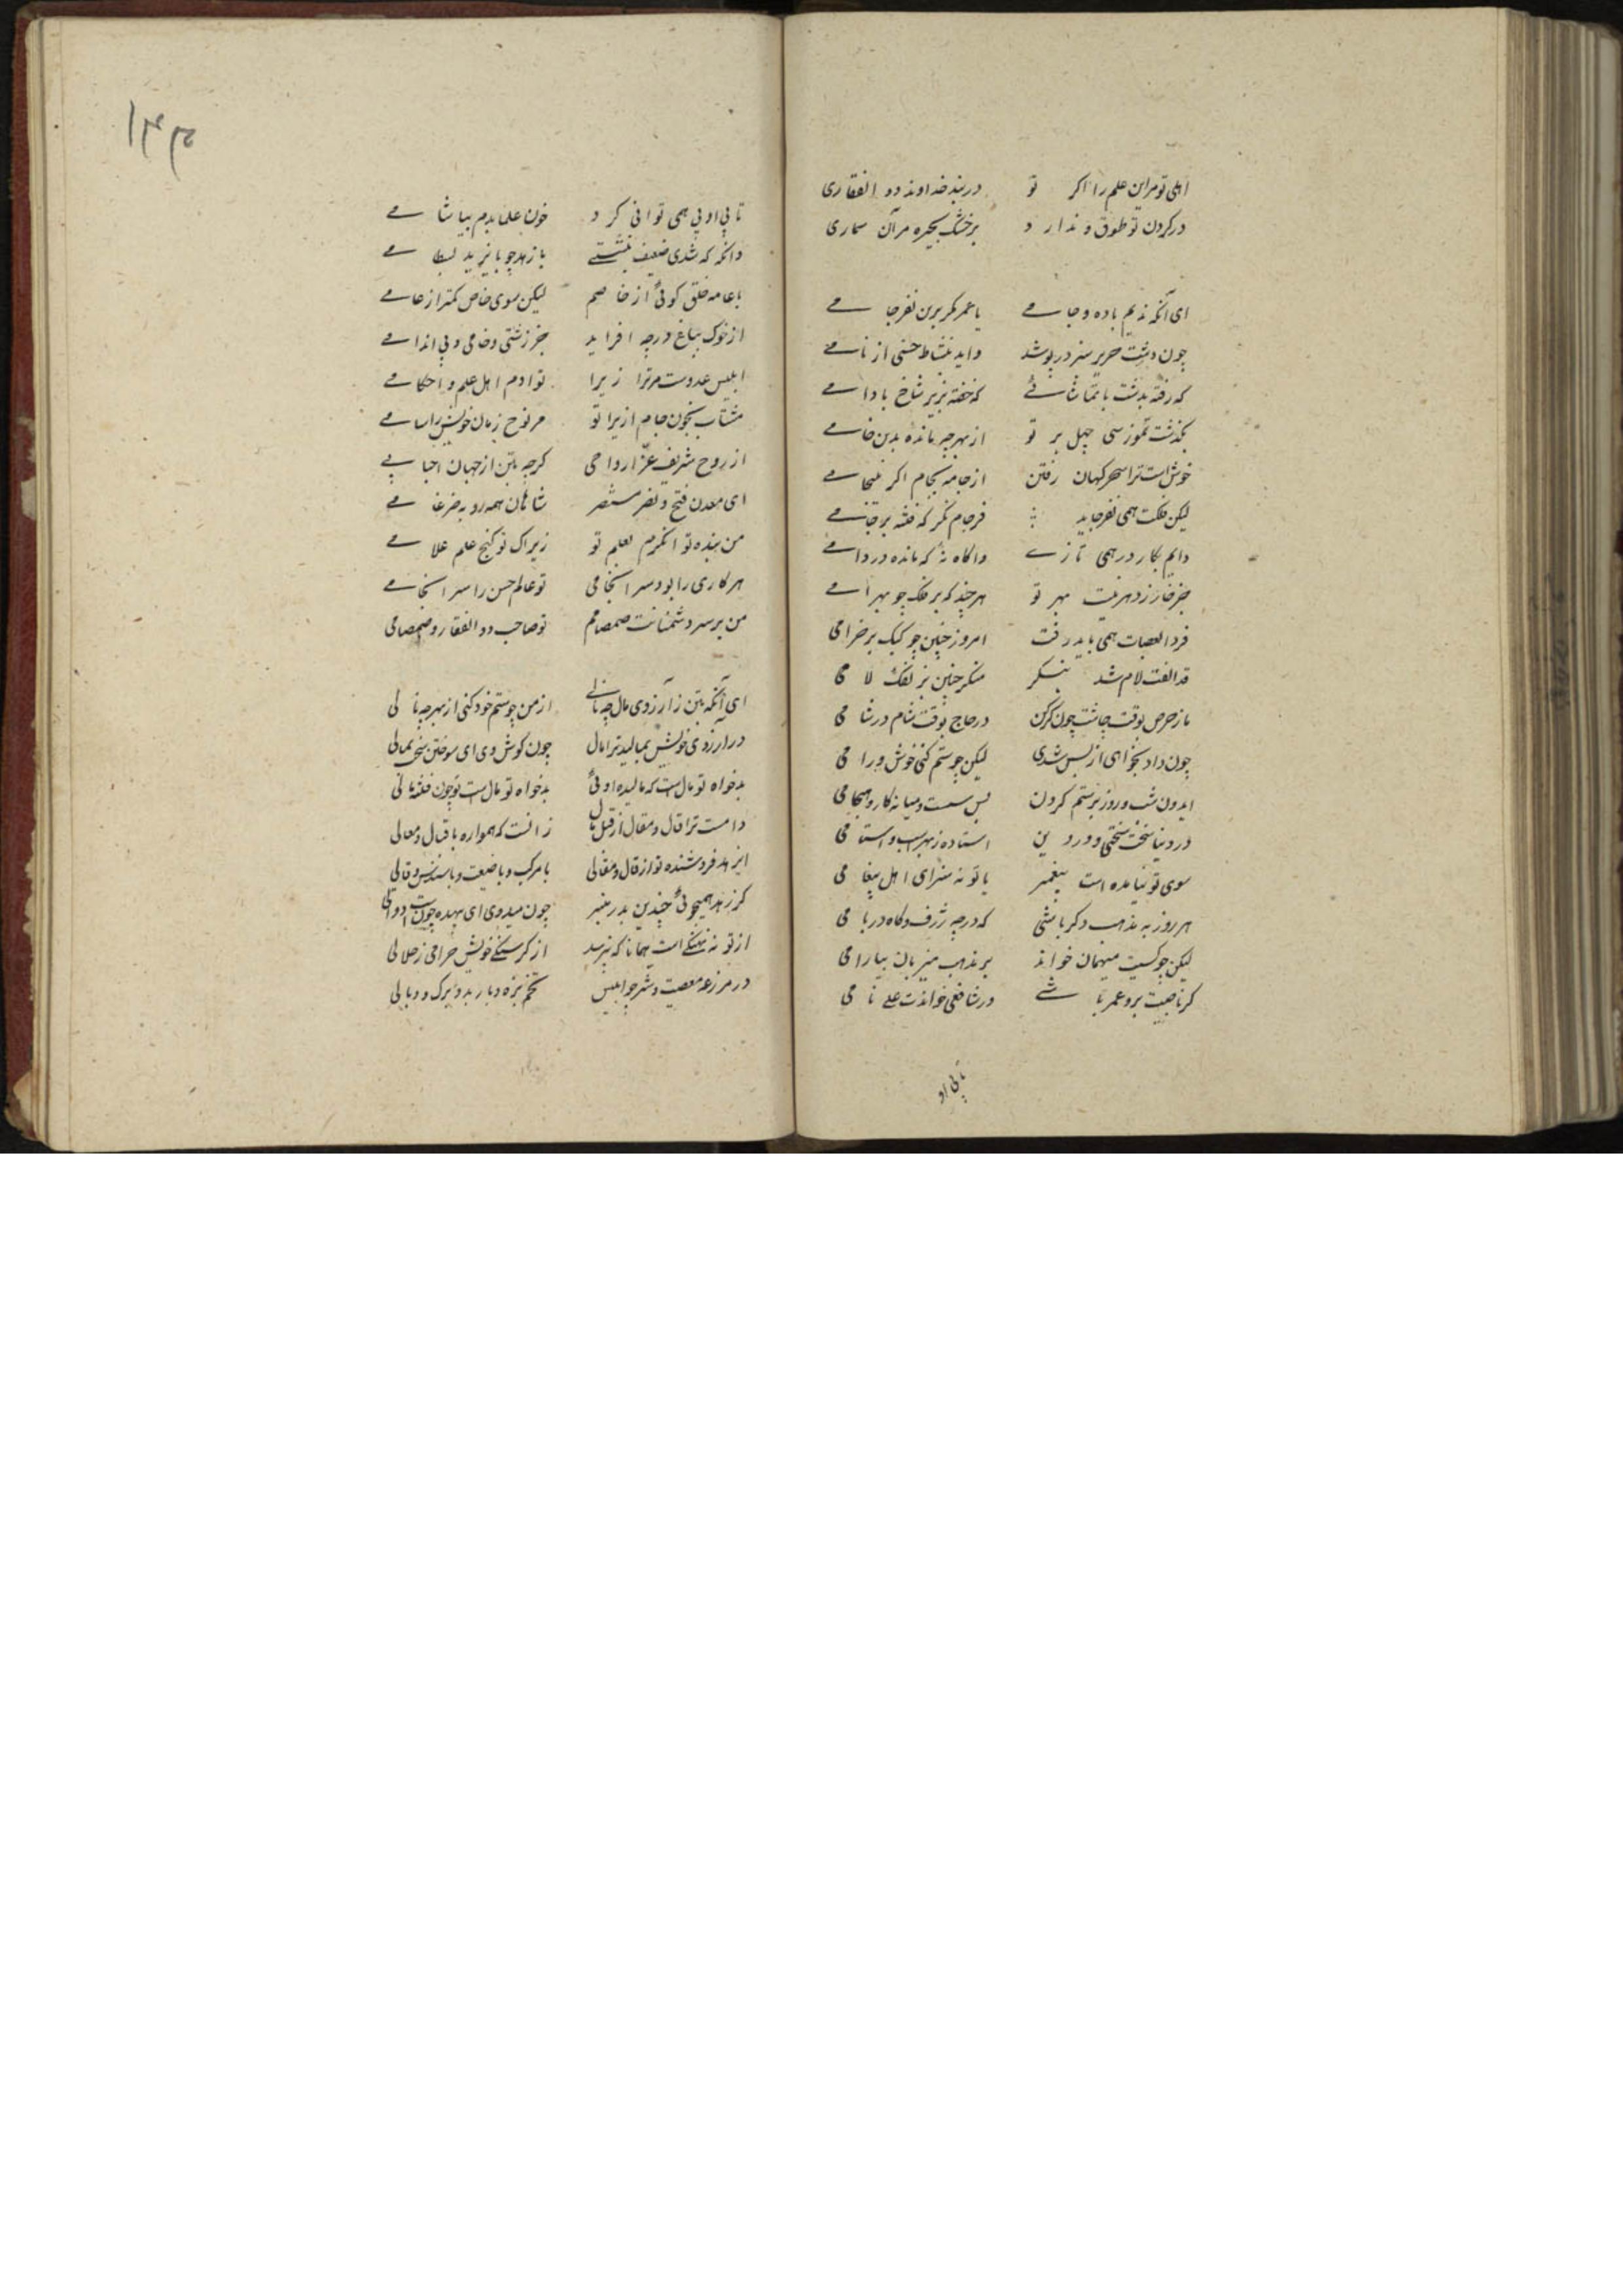 اهلی تو مراین علم را اکر تو در بند خداوند ذو الفقاری
در کردن تو طوق و ندارد بر خشک بخیره مران سماری
ای آنکه ندیم باده و جامے یا عمر مکر برین نفرجامے
چون دشت حریر سبز در پوشد واید بنشاط حسنی از نامے
که رفته بدشت با تماشائے که خفته بزیر شاخ بادامے
بکذشت تموز سی چهل بر تو از بهر چه مانده بدین خامے
خوش است ترا سحرکهان رفتن از جامه بجام اکر
لیکن فلکت همی بفرجاید فرجام نکر که فتنه بر جامے
دایم بکار در همی تازے واکاه نه که مانده در دامے
جز خار ز دهر نیست بهر تو هر چند که بر فلک چو بهرامے
فردا بعصات همی باید رفت امروز چنین چو کبک بر خرامی
قد الفت لام شد بنکر منکر چنین بزلفک لامی
باز حرص بوقت چاشت چون کرکس در حاج بوقت شام در شامی
چون داد بخواهی از بس شدی لیکن چو ستم کنی خوش ورامی
ایدون شب و روز بر ستم کردن بس سست ومیانه کار وهیچامی
در دنیا سخت سختی و در دین استاده ز بهر اسب و استامی
سوی تو نیامده است پیغمبر یا تو نه سزای اهل پیغامی
هر روز به مذهب دکر باشی که در چه ژرف و کاه در بامی
لیکن چو کسیت میهمان خواند بر مذهب میزبان بیارامی
کر ناصبیت برد عمر باشے ور شافعی خواندت علے نامی
تا پی او
تا پی او پی همی توانی کرد خون علما بدم بیاشامے
وانکه که شدی ضعیف بنشستے با زهد چو بایزید بسطامے
با عامه خلق کوئی از خاصم لیکن سوی خاص کمتر از عامے
از خوک بباغ در چه افزاید جز زشتی و خامی و بی اندامے
ابلیس عدوست مر ترا زیرا تو ادم اهل علم و احکامے
مشتاب بخون جام ازیرا تو مر نوح زمان خویش را سامے
از روح شریف عز ارواحی کرچه بتن از جهان
ای معدن فتح و نصر مستنصر شاهان همه روبه ضرغامے
من بنده توانکرم بعلم تو زیراک تو کنج علم علامے
هر کاری را بود سر انجامی تو عالم حس را سر انجامے
من بر سر دشمنانت صمصامم تو صاحب ذو الفقار و صمصامی
ای آنکه بتن ز آرزوی مال چو نالے از من چو ستم خود کنی از بهر چه نالی
در آرزوی خویش بمالید ترا مال چون کوش دی ای سوختن سخت بمالی
بدخواه تو مال است که مالیده اوئی بدخواه تو مال است تو چون فتنه مالی
دامست ترا قال و مقال از قبل مال زانست که همواره با قبال ومقالی
این هد فروشنده تو از قال و مقالی با مرکب و با ضیعت و با سندس و قالی
کز زهد همیجوئی چندین بدر میر چون میدوی ای بیهده چون است دوالی
از تو نه نهنکے است همانا که نپرسد از کرسنکے خویش حرامی ز حلالی
در مزرعه معصیت و شر چو ابلیس تخم بزه و بار بد و برک و وبالی